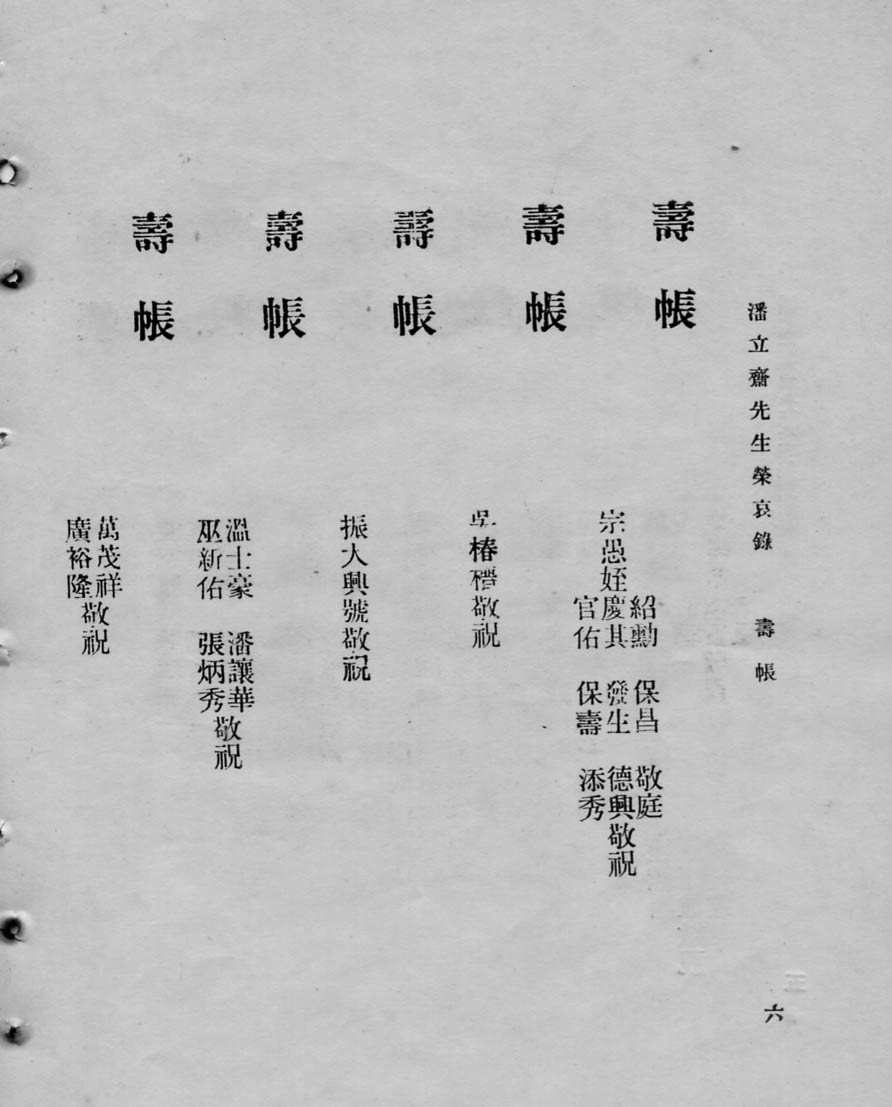 潘立齋先生榮哀錄 壽帳
壽帳
宗愚姪
紹勳 保昌 敬庭
慶其 發生 德興敬祝
官佑 保壽 添秀
壽帳
吳椿禧敬祝
壽帳
振大興號敬祝
壽帳
溫士豪 潘讓華
巫新佑 張炳秀
敬祝
壽帳
萬茂祥
廣裕隆
敬祝
六